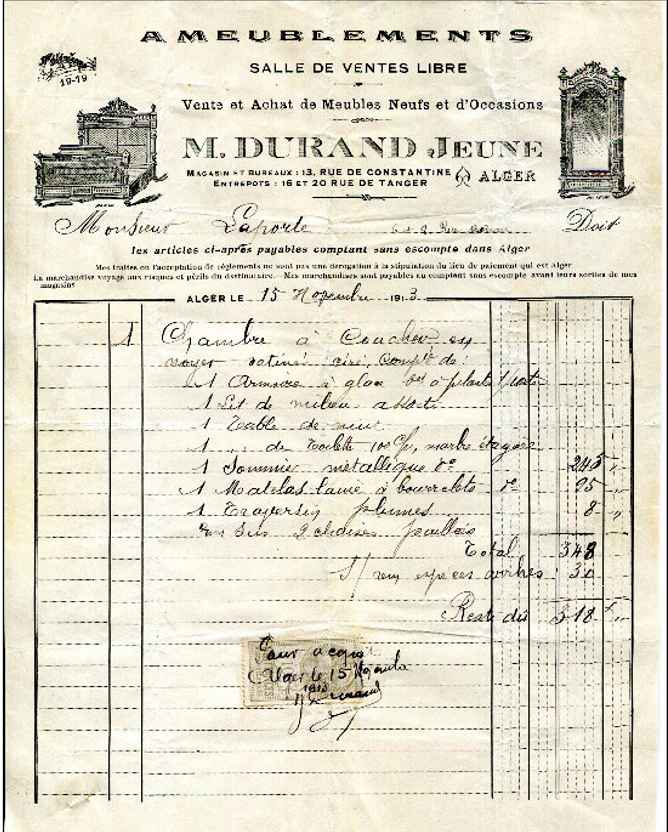 AMEUBLEMENTS
SALLE DE VENTES LIBRE
19-19
Vente et Achat de Meubles Neufs et d'Occasions
M. DURAND JEUNE
MAGASIN ET BUREAUX : 13, RUE DE CONSTANTINE
ENTREPOTS : 16 ET 20 RUE DE TANGER
ALGER
Monsieur Laporte Doit
les articles ci-après payables comptant sans escompte dans Alger
Mes traites ou l'acceptation de règlements ne sont pas une dérogation à la stipulation du lieu de paiement qui est Alger
La marchandise voyage aux risques et périls du destinataire. - Mes marchandises sont payables au comptant sans escompte avant leurs sorties de mes
magasins
ALGER LE 15 Novembre 1913
1 Chambre à Coucher en
noyer satiné ciré, Compté de :
1 Armoire à glace
1 Lit de milieu assorti
1 Table de nuit
1 " de Toilette marbre étagère
1 Sommier métallique 245 "
1 Matelas laine à bourrelets 95 "
1 Traversin plumes 8 "
2 chaises
Total 348
espèces arrhes 30
Reste dû 318 "
Pour acquit
Alger le 15 Novembre
1913
Durand